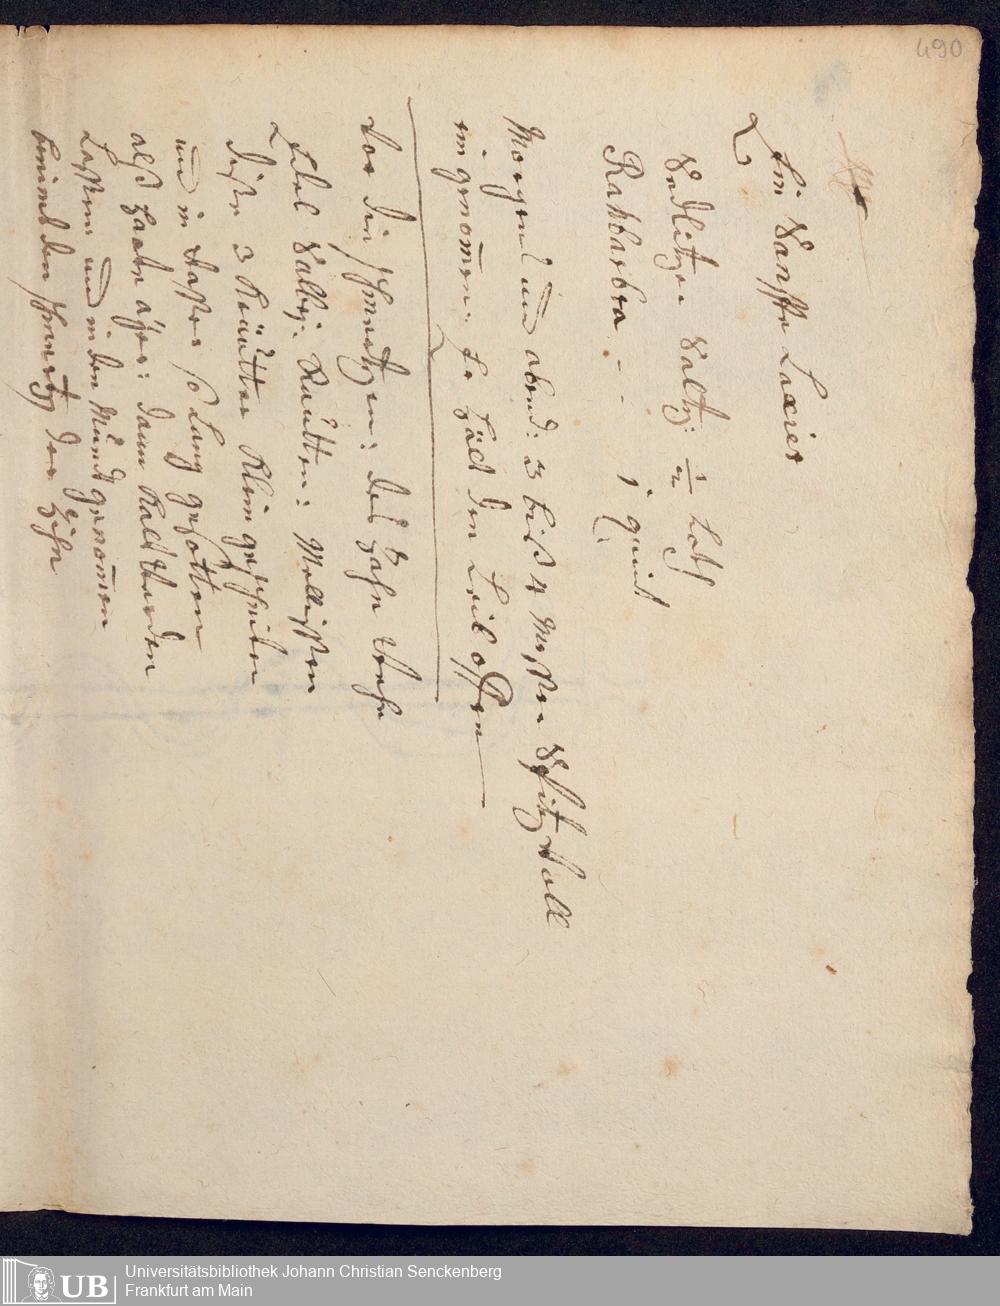 490
Ein Sanffte Laxier
Sedlitzer Saltz: 1/2 Loth
Rabbarbra - - 1 quint
Morgens und abend: 3 biß 4 Messer Spitz voll
ein genomen: Er hält den Leib offen
Vor den schmertzen: des Zahn Wehe
Edel Salbey: Rautten: Mellissen
diese 3 Kräutter Klein geschniten
und in wasser so Lang gesotten
alß harte ayer: dann Kalt werden
Lassen und in den Mund genomen
benimbt den schmertz der Zähn
Universitätsbibliothek Johann Christian Senckenberg
Frankfurt am Main
UB